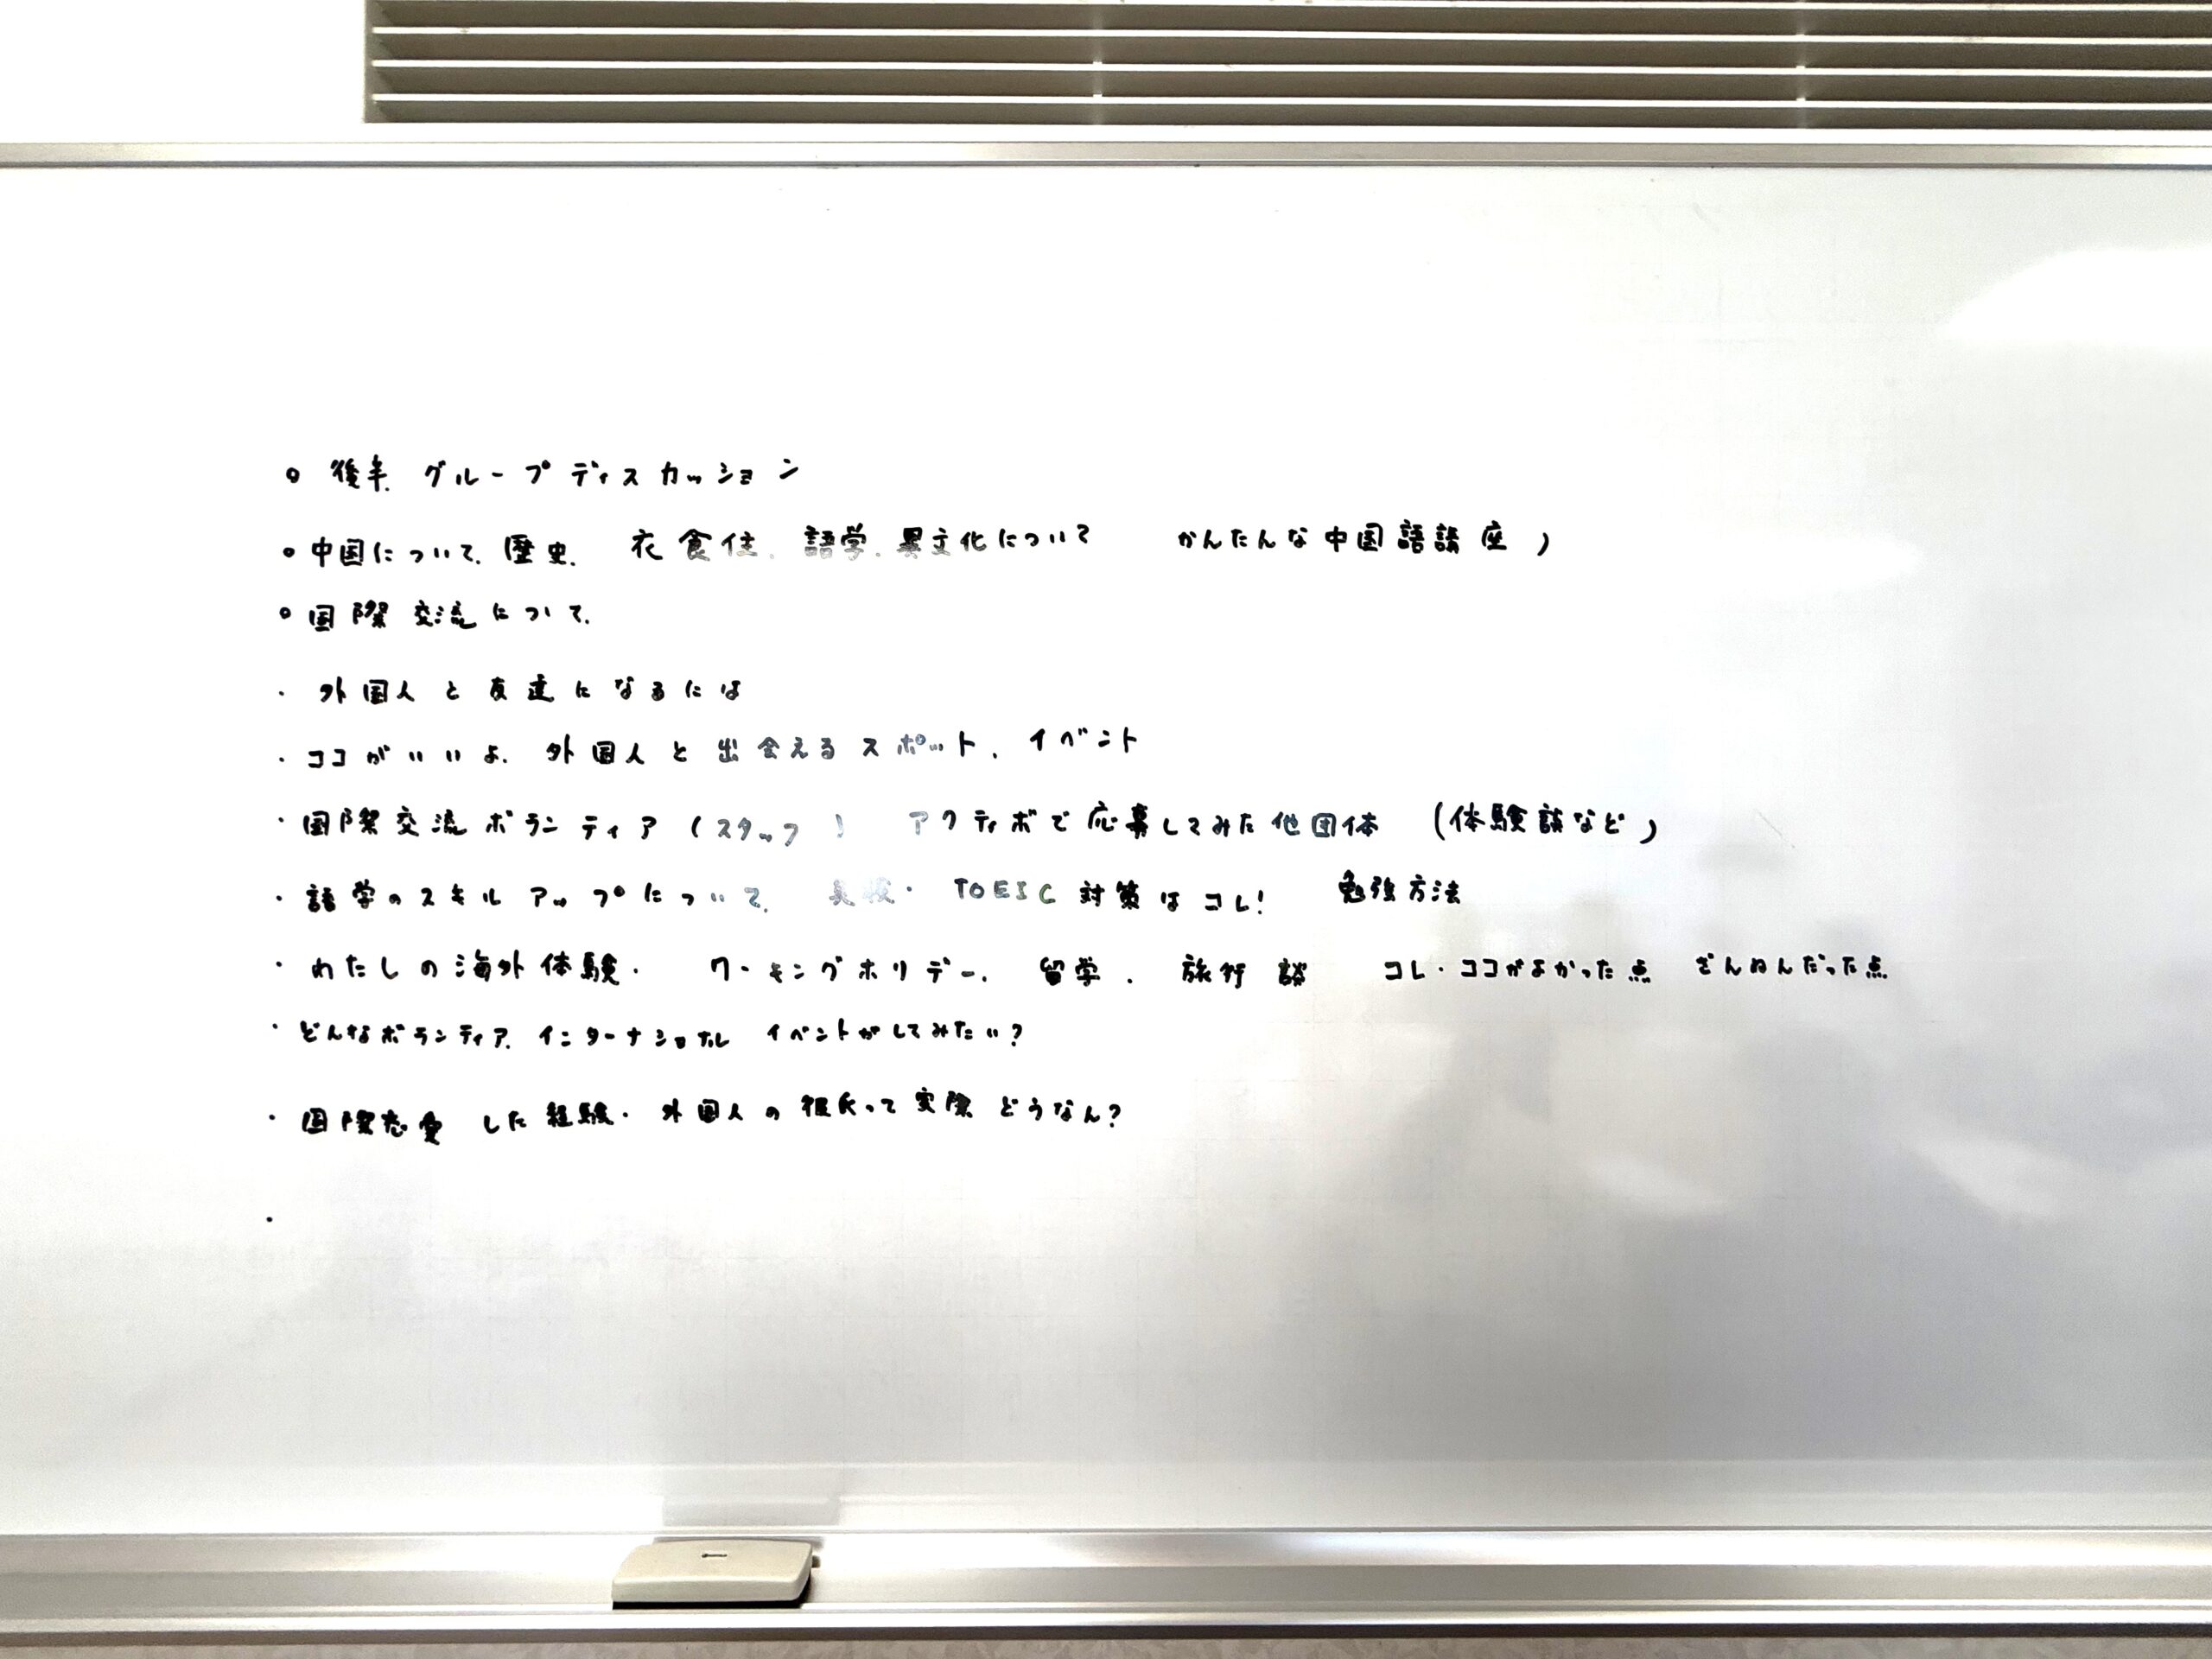 ○ 後半 グループディスカッション
○ 中国について、歴史、 衣食住、語学、異文化について かんたんな中国語講座)
○ 国際交流について、
・ 外国人と友達になるには
・ ココがいいよ、外国人と出会えるスポット、イベント
・ 国際交流ボランティア(スタッフ) アクティボで応募してみた他団体 (体験談など)
・ 語学のスキルアップについて、 英検・ TOEIC 対策はコレ! 勉強方法
・ わたしの海外体験・ ワーキングホリデー、 留学、 旅行談 コレ・ココがよかった点 ざんねんだった点
・ どんなボランティア、インターナショナル イベントがしてみたい?
・ 国際恋愛 した経験・ 外国人の彼氏って実際どうなん?
・